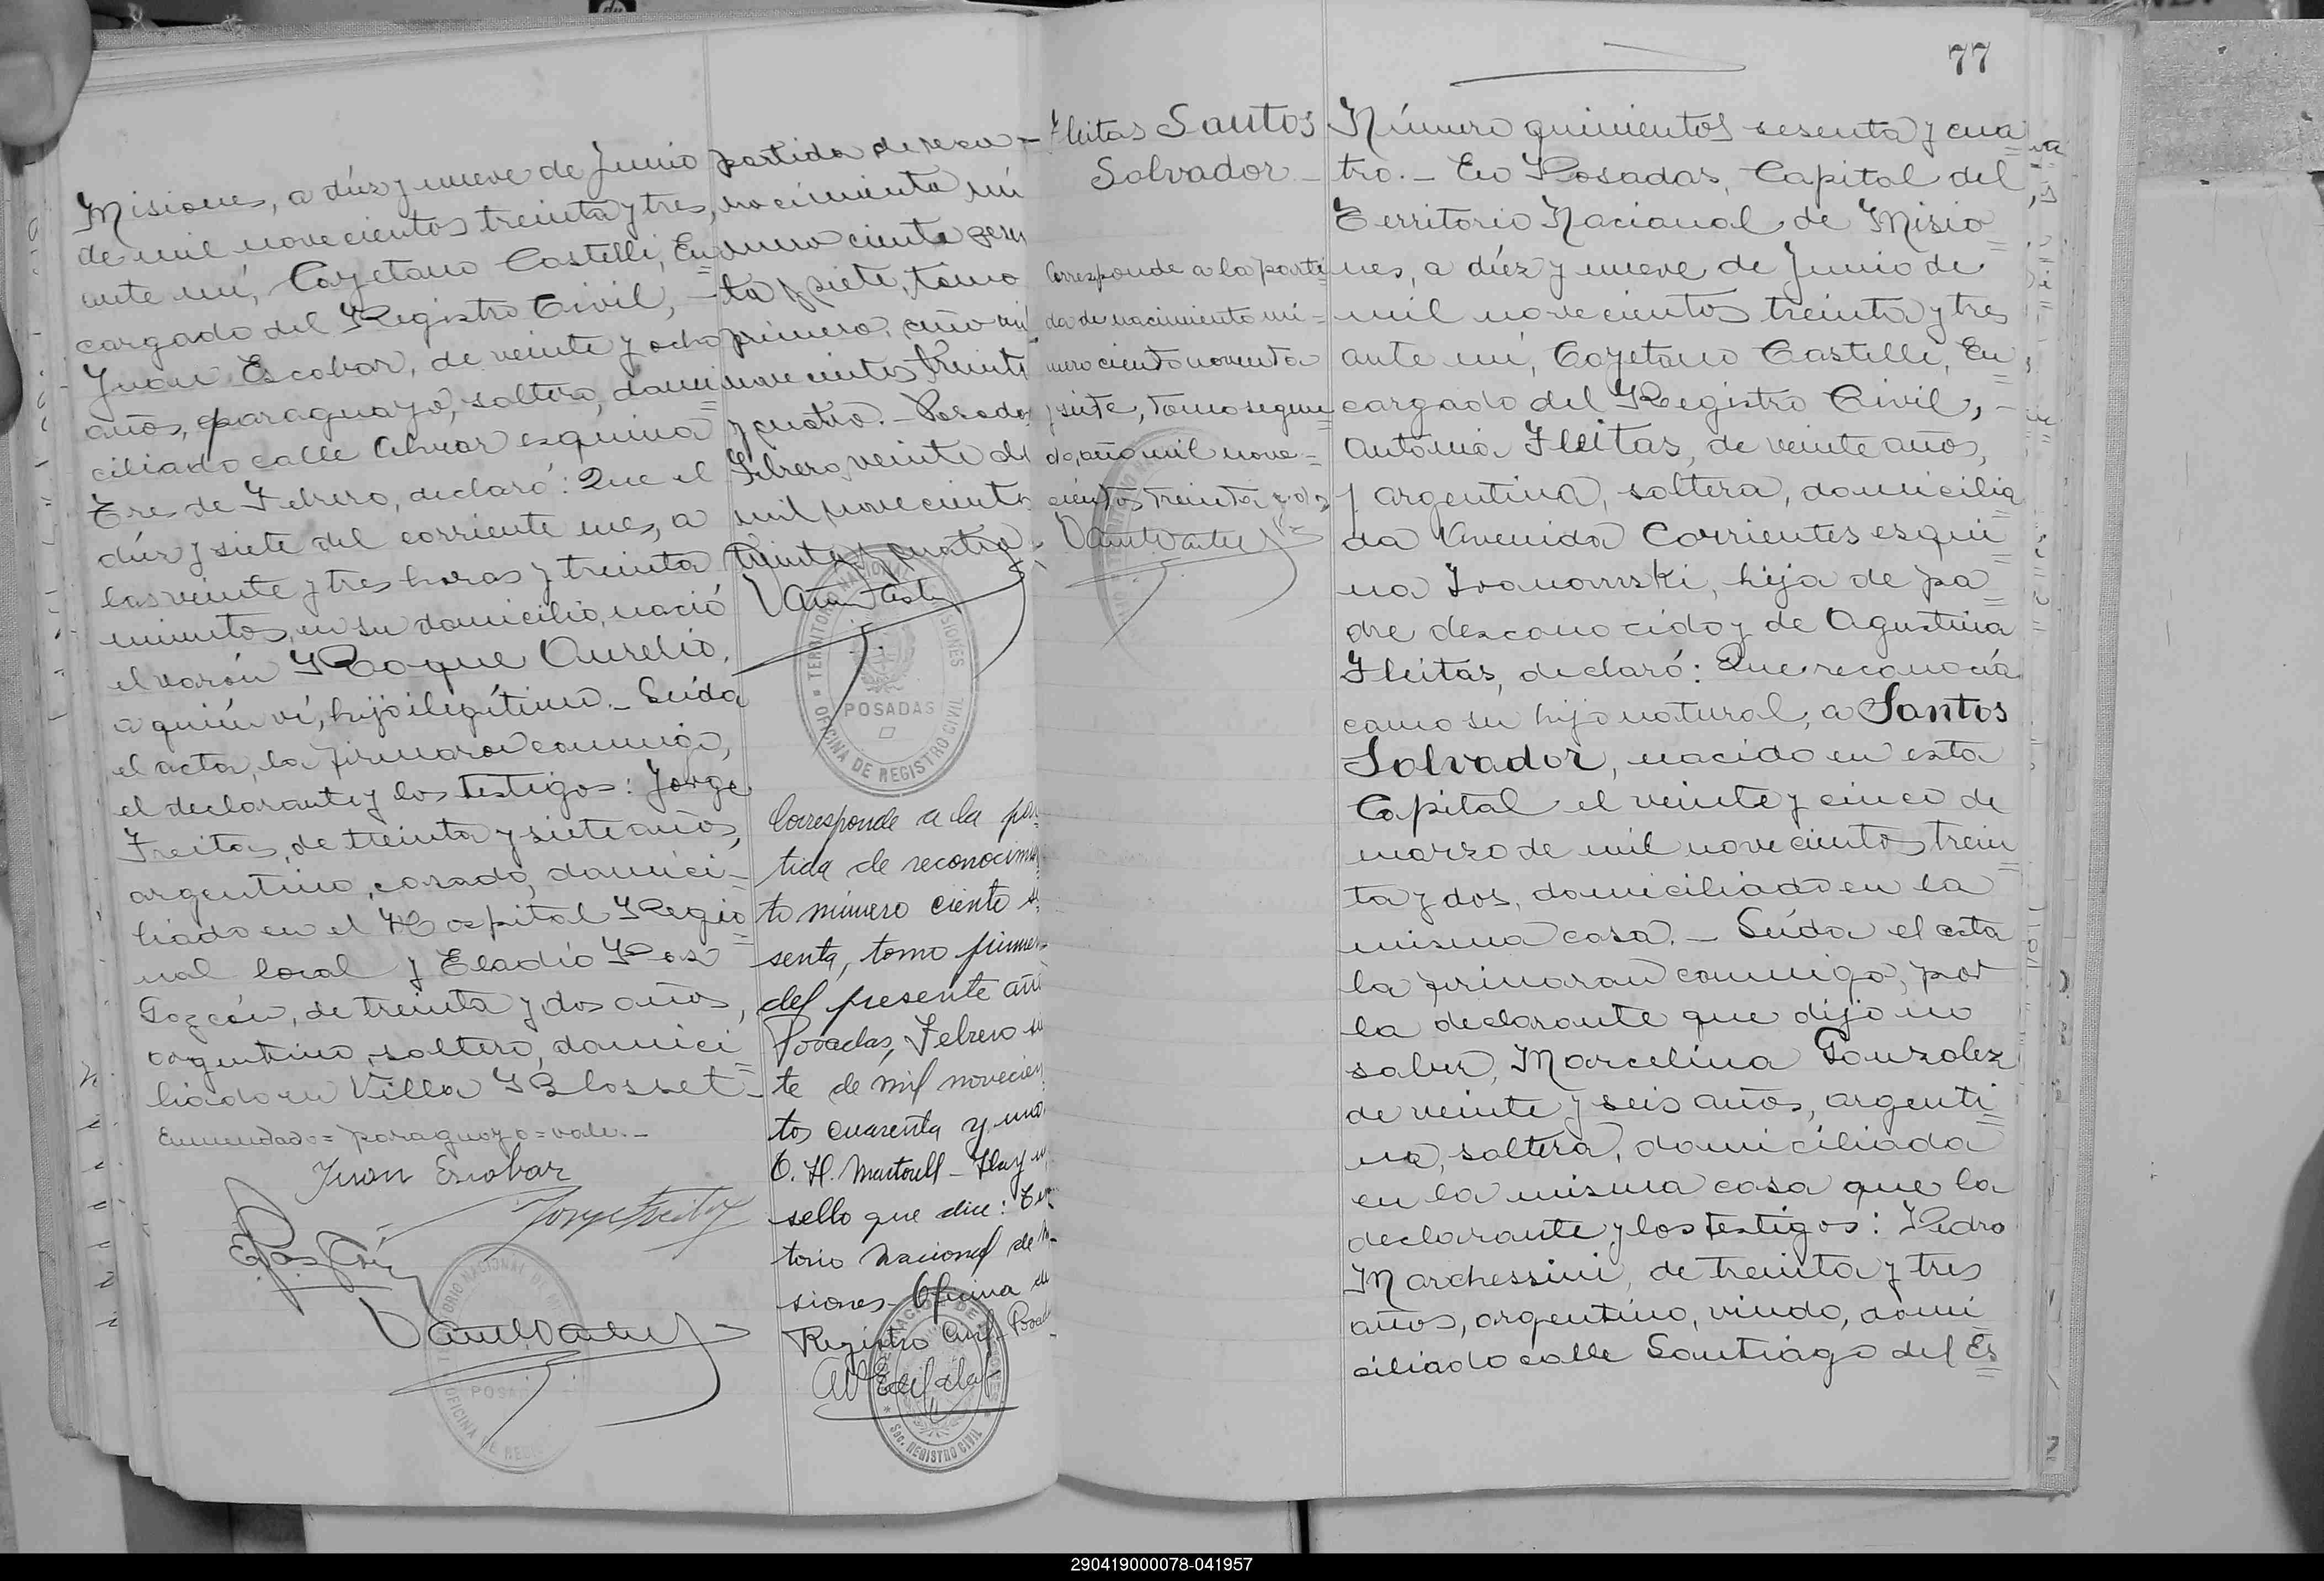 Misiones, a diéz y nueve de Junio
de mil novecientos treinta y tres,
ante mí, Cayetano Castelli, En=
cargado del Registro Civil, -
Juan Escobar, de veinte y ocho
años, paraguayo, soltero, domi=
ciliado calle Alvear esquina
Tres de Febrero, declaró: Que el
diéz y siete del corriente mes, a
las veinte y tres horas y treinta
minutos, en su domicilio, nació
el varón Roque Aurelio,
a quién ví, hijo ilegítimo._ Leída
el acta, la firmaron conmigo,
el declarante y los testigos: Jorge
Freitas, de treinta y siete años,
argentino, casado, domici-
liado en el Hospital Regio=
nal local y Eladio Pas
Gozcón, de treinta y dos años,
argentino, soltero, domici=
liado en Villa Blosset_
Enmendado=paraguayo=vale._
Juan Escobar
Jorge Freitas
TERRITORIO NACIONAL DE MISIONES
POSADAS
OFICINA DE REGISTRO CIVIL
partida de reco-
nocimiento nú
mero ciento sesen
ta y siete, tomo
primero, año mil
novecientos treinta
y cuatro._ Posadas
Febrero, veinte de
mil novecientos
treinta y cuatro.
TERRITORIO NACIONAL DE MISIONES
POSADAS
OFICINA DE REGISTRO CIVIL
Corresponde a la par=
tida de reconocimien
to número ciento se
senta, tomo primero
del presente año
Posadas, Febrero sie
te de mil novecien
tos cuarenta y uno.
C. H. Martorell - Hay un
sello que dice: Terri
torio Nacional de Mi-
siones - Oficina de
Registro Civil - Posadas
Sec. REGISTRO CIVIL
77
Fleitas Santos
Salvador_
Corresponde a la parti=
da de nacimiento nú=
mero ciento noventa
y siete, tomo segun
do, año mil nove=
cientos treinta y dos
Número quinientos sesenta y cua=
tro._ En Posadas, Capital del
Territorio Nacional de Misio=
nes, a diéz y nueve de Junio de
mil novecientos treinta y tres
ante mí, Cayetano Castelli, En=
cargado del Registro Civil, -
Antonia Fleitas, de veinte años,
argentina, soltera, domicilia=
da Avenida Corrientes esqui=
na Ivanowski, hija de pa=
dre desconocido y de Agustina
Fleitas, declaró: Que reconocía
como su hijo natural, a Santos
Salvador, nacido en esta
Capital el veinte y cinco de
marzo de mil novecientos trein=
ta y dos, domiciliado en la
misma casa._ Leída el acta
la firmaron conmigo, por
la declarante que dijo no
saber, Marcelina Gonzalez
de veinte y seis años, argenti=
na, soltera, domiciliada
en la misma casa que la
declarante y los testigos: Pedro
Marchessini, de treinta y tres
años, argentino, viudo, domi
ciliado calle Santiago del Es=
290419000078-041957